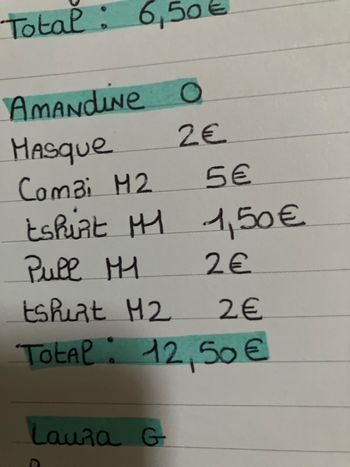 Total : 6,50€
AMANDINE O
MASQUE 2€
COMBi M2 5€
tshirt M1 1,50€
Pull M1 2€
tshirt M2 2€
TOTAL : 12,50€
LAURA G